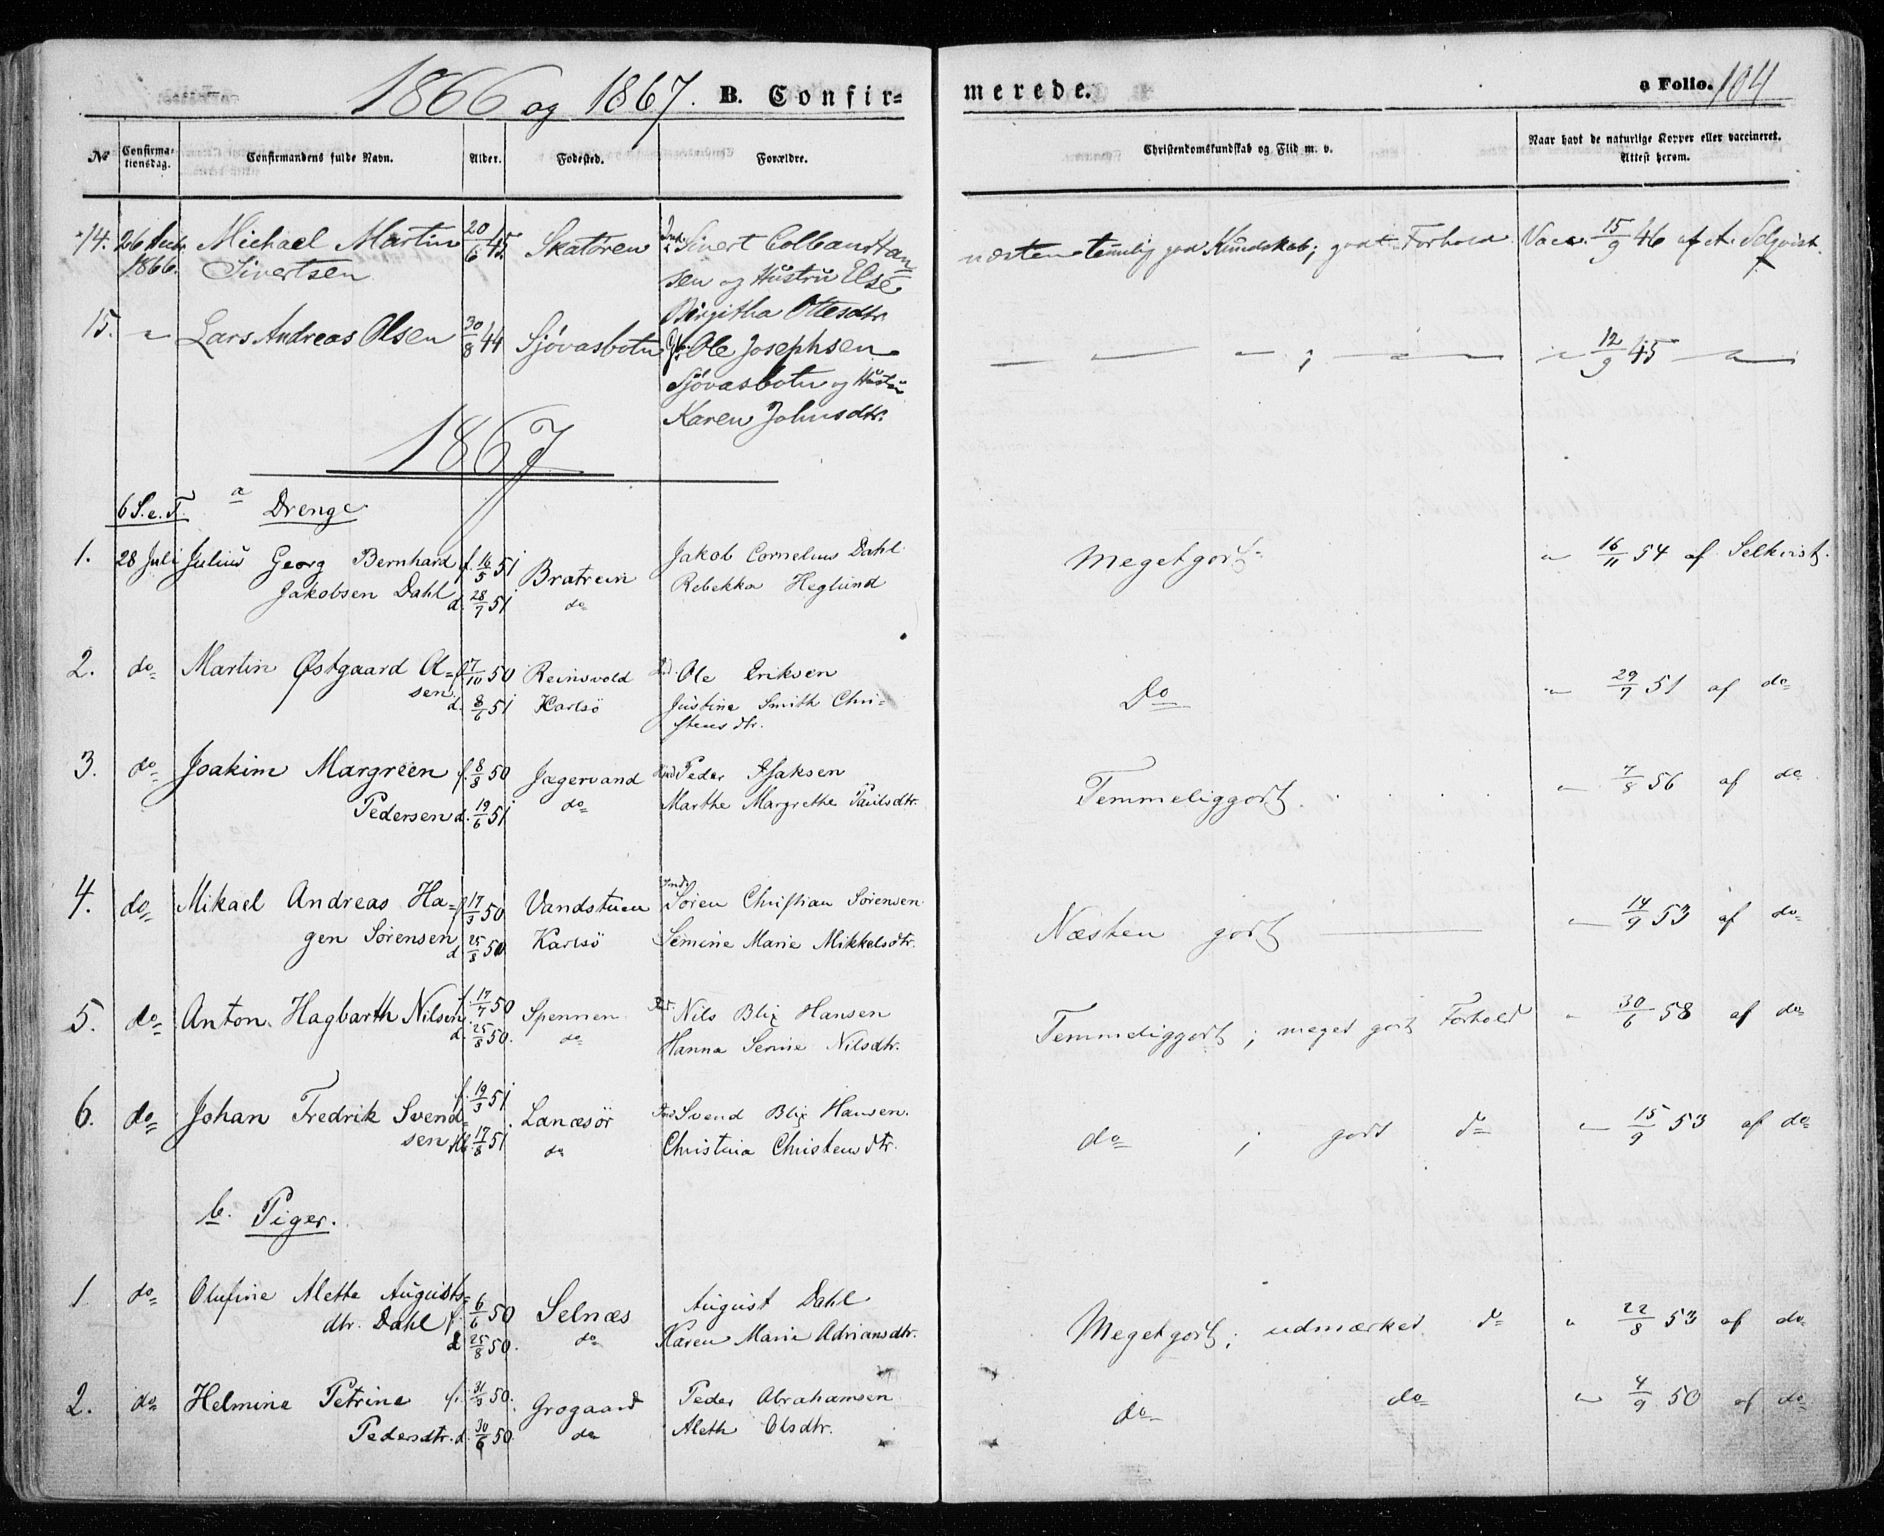 1866 og 1867. B. Confir-
merede.
a Folio. 104
No
Confirma-
tionsdag.
Confirmandens fulde Navn.
Alder.
Fødested.
Forældre.
Christendomskundskab og Flid m. v.
Naar havt de naturlige Kopper eller vaccineret.
Attest herom.
14. 26 1866. Michael Martin Sivertsen 20/6 45. Skatøren Sivert Colban Han
sen og Hustru Else
Birgitha Ottesdtr.
næsten temlig god Kundskab; godt Forhold Vacc. 15/9 46 af A. Selqvist.
15. " Lars Andreas Olsen 30/8 44 Sjøvasbotn Ole Josephsen
Sjøvasbotn og Hustru
Karen Johnsdtr.
— — — ; — — " 12/9 45 — " —
1867
6 S. e. T. a Drenge
1. 28 Juli Julius Georg Bernhard f. 16/5 51 Bratrein Jakob Cornelius Dahl
Jakobsen Dahl d. 28/7 51 do Rebekka Heglund
Megetgodt " 16/11 54 af Selkvist.
2. do Martin Østgaard Ol- f. 7/10 50 Reinsvold Ind. Ole Eriksen
sen d. 8/6 51 Karlsö Justine Smith Chri-
stensdtr.
Do " 29/7 51 af do
3. do Joakim Margreen f. 8/8 50 Jægervand Ind Peder Isaksen
Pedersen d. 19/6 51 do Marthe Margrethe Paulsdtr.
Temmeliggodt " 7/8 56 af do
4. do Mikael Andreas Ha- f. 17/3 50 Vandstuen Ind. Søren Christian Sörensen
gen Sørensen d. 25/8 50 Karlsö Semine Marie Mikkelsdtr.
Næsten godt " 14/9 53 af do
5. do Anton Hagbarth Nilsen f. 17/7 50 Spennen Ind. Nils Blix Hansen
d. 25/8 50. do Hanna Serine Nilsdtr.
Temmeliggodt; meget godt Forhold " 30/6 58 af do
6. do Johan Fredrik Svend- f. 19/3 51 Lanæsør Ind Svend Blix Hansen.
sen 17/8 51 do Christina Christensdtr.
do ; godt do " 15/9 53 af do
b. Piger.
1 do Olufine Alette Augusts-
dtr. Dahl f. 6/6 50 Selnæs August Dahl
d 25/8 50. do Karen Marie Adriansdtr.
Megetgodt; udmærket do " 22/8 53 af do
2. do Helmine Petrine f. 31/3 50. Grogaard Peder Abrahamsen
Pedersdtr. d. 30/6 50. do Aleth Olsdtr.
do do " 4/9 50 af do